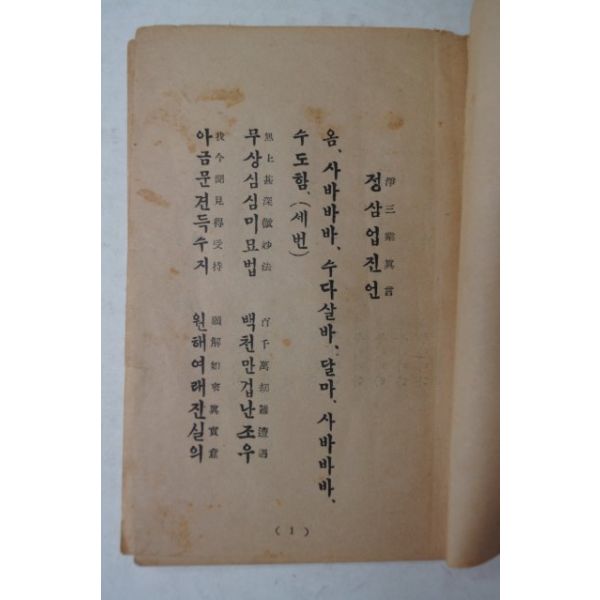 淨三業眞言
정삼업진언
옴、사바바바、수다살바、달마、사바바바、
수도함、(세번)
無上甚深微妙法 百千萬劫難遭遇
무상심심미묘법 백천만겁난조우
我今聞見得受持 願解如來眞實意
아금문견득수지 원해여래진실의
( 1 )